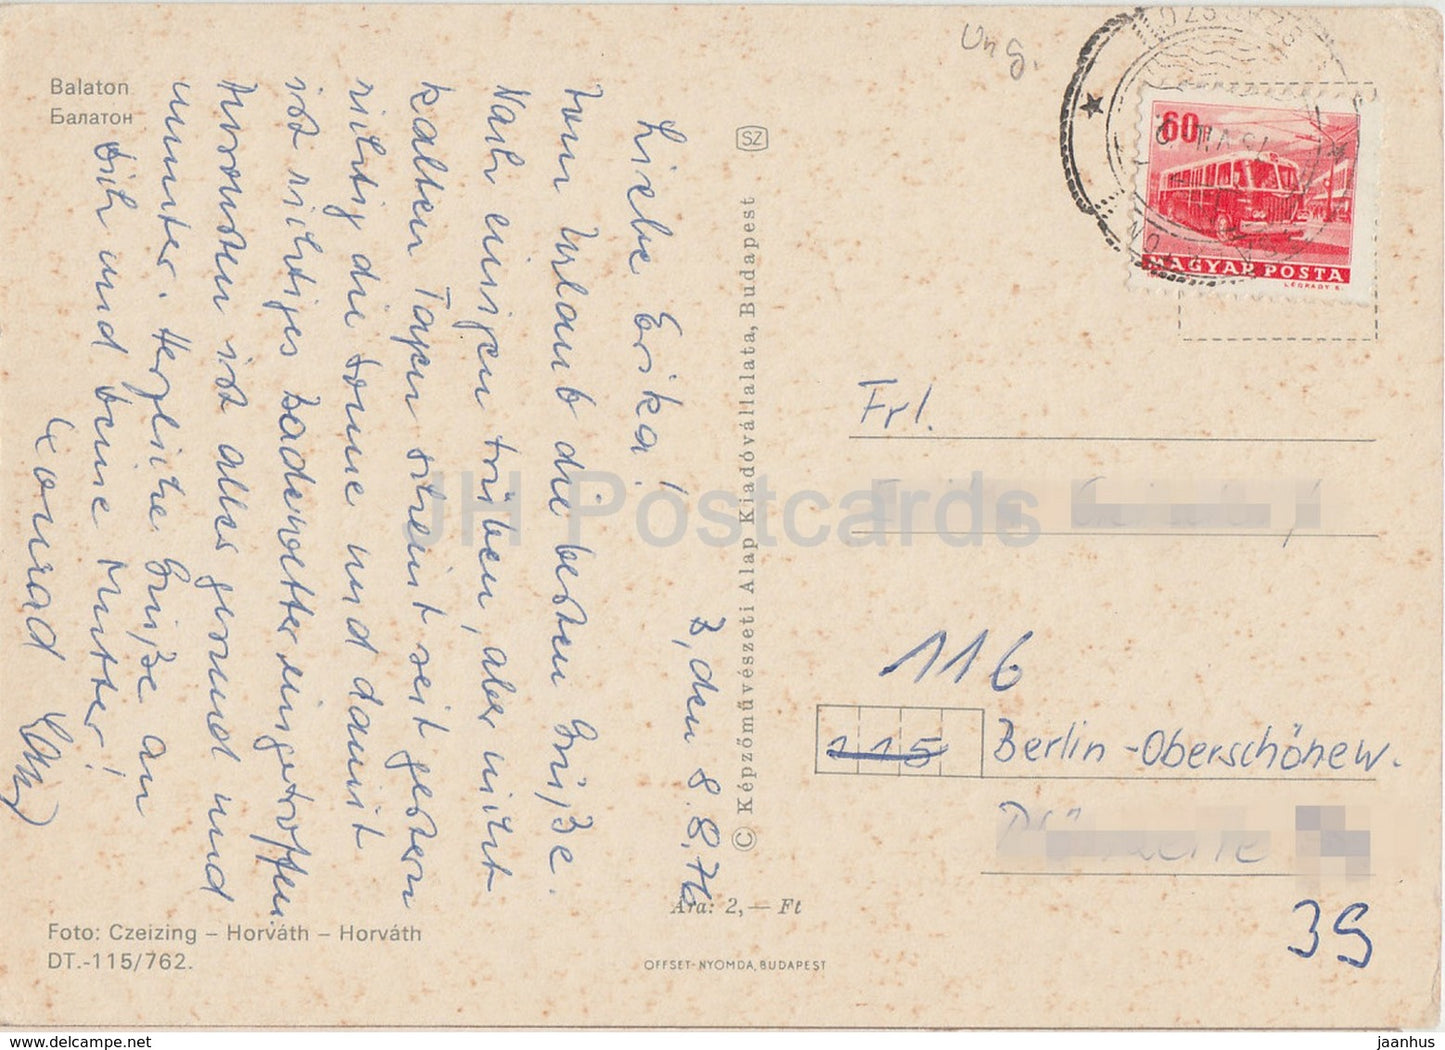 Ung.
Balaton
Балатон
Z, den 8.8.76
Liebe Erika!
Vom Urlaub die besten Grüße.
Nach einigen trüben, aber nicht
kalten Tagen scheint seit gestern
richtig die Sonne und damit
ist richtiges Badewetter eingetroffen.
Ansonsten ist alles gesund und
munter. Herzliche Grüße an
Dich und Deine Mutter!
Konrad
SZ
© Képzőművészeti Alap Kiadóvállalata, Budapest
60
MAGYAR POSTA
LÉGRÁDY S.
Frl.
116
115
Berlin-Oberschönew.
39
Ára: 2,— Ft
Foto: Czeizing – Horváth – Horváth
DT.-115/762.
OFFSET-NYOMDA, BUDAPEST
JH Postcards
www.jaanhus.com
jaanhus